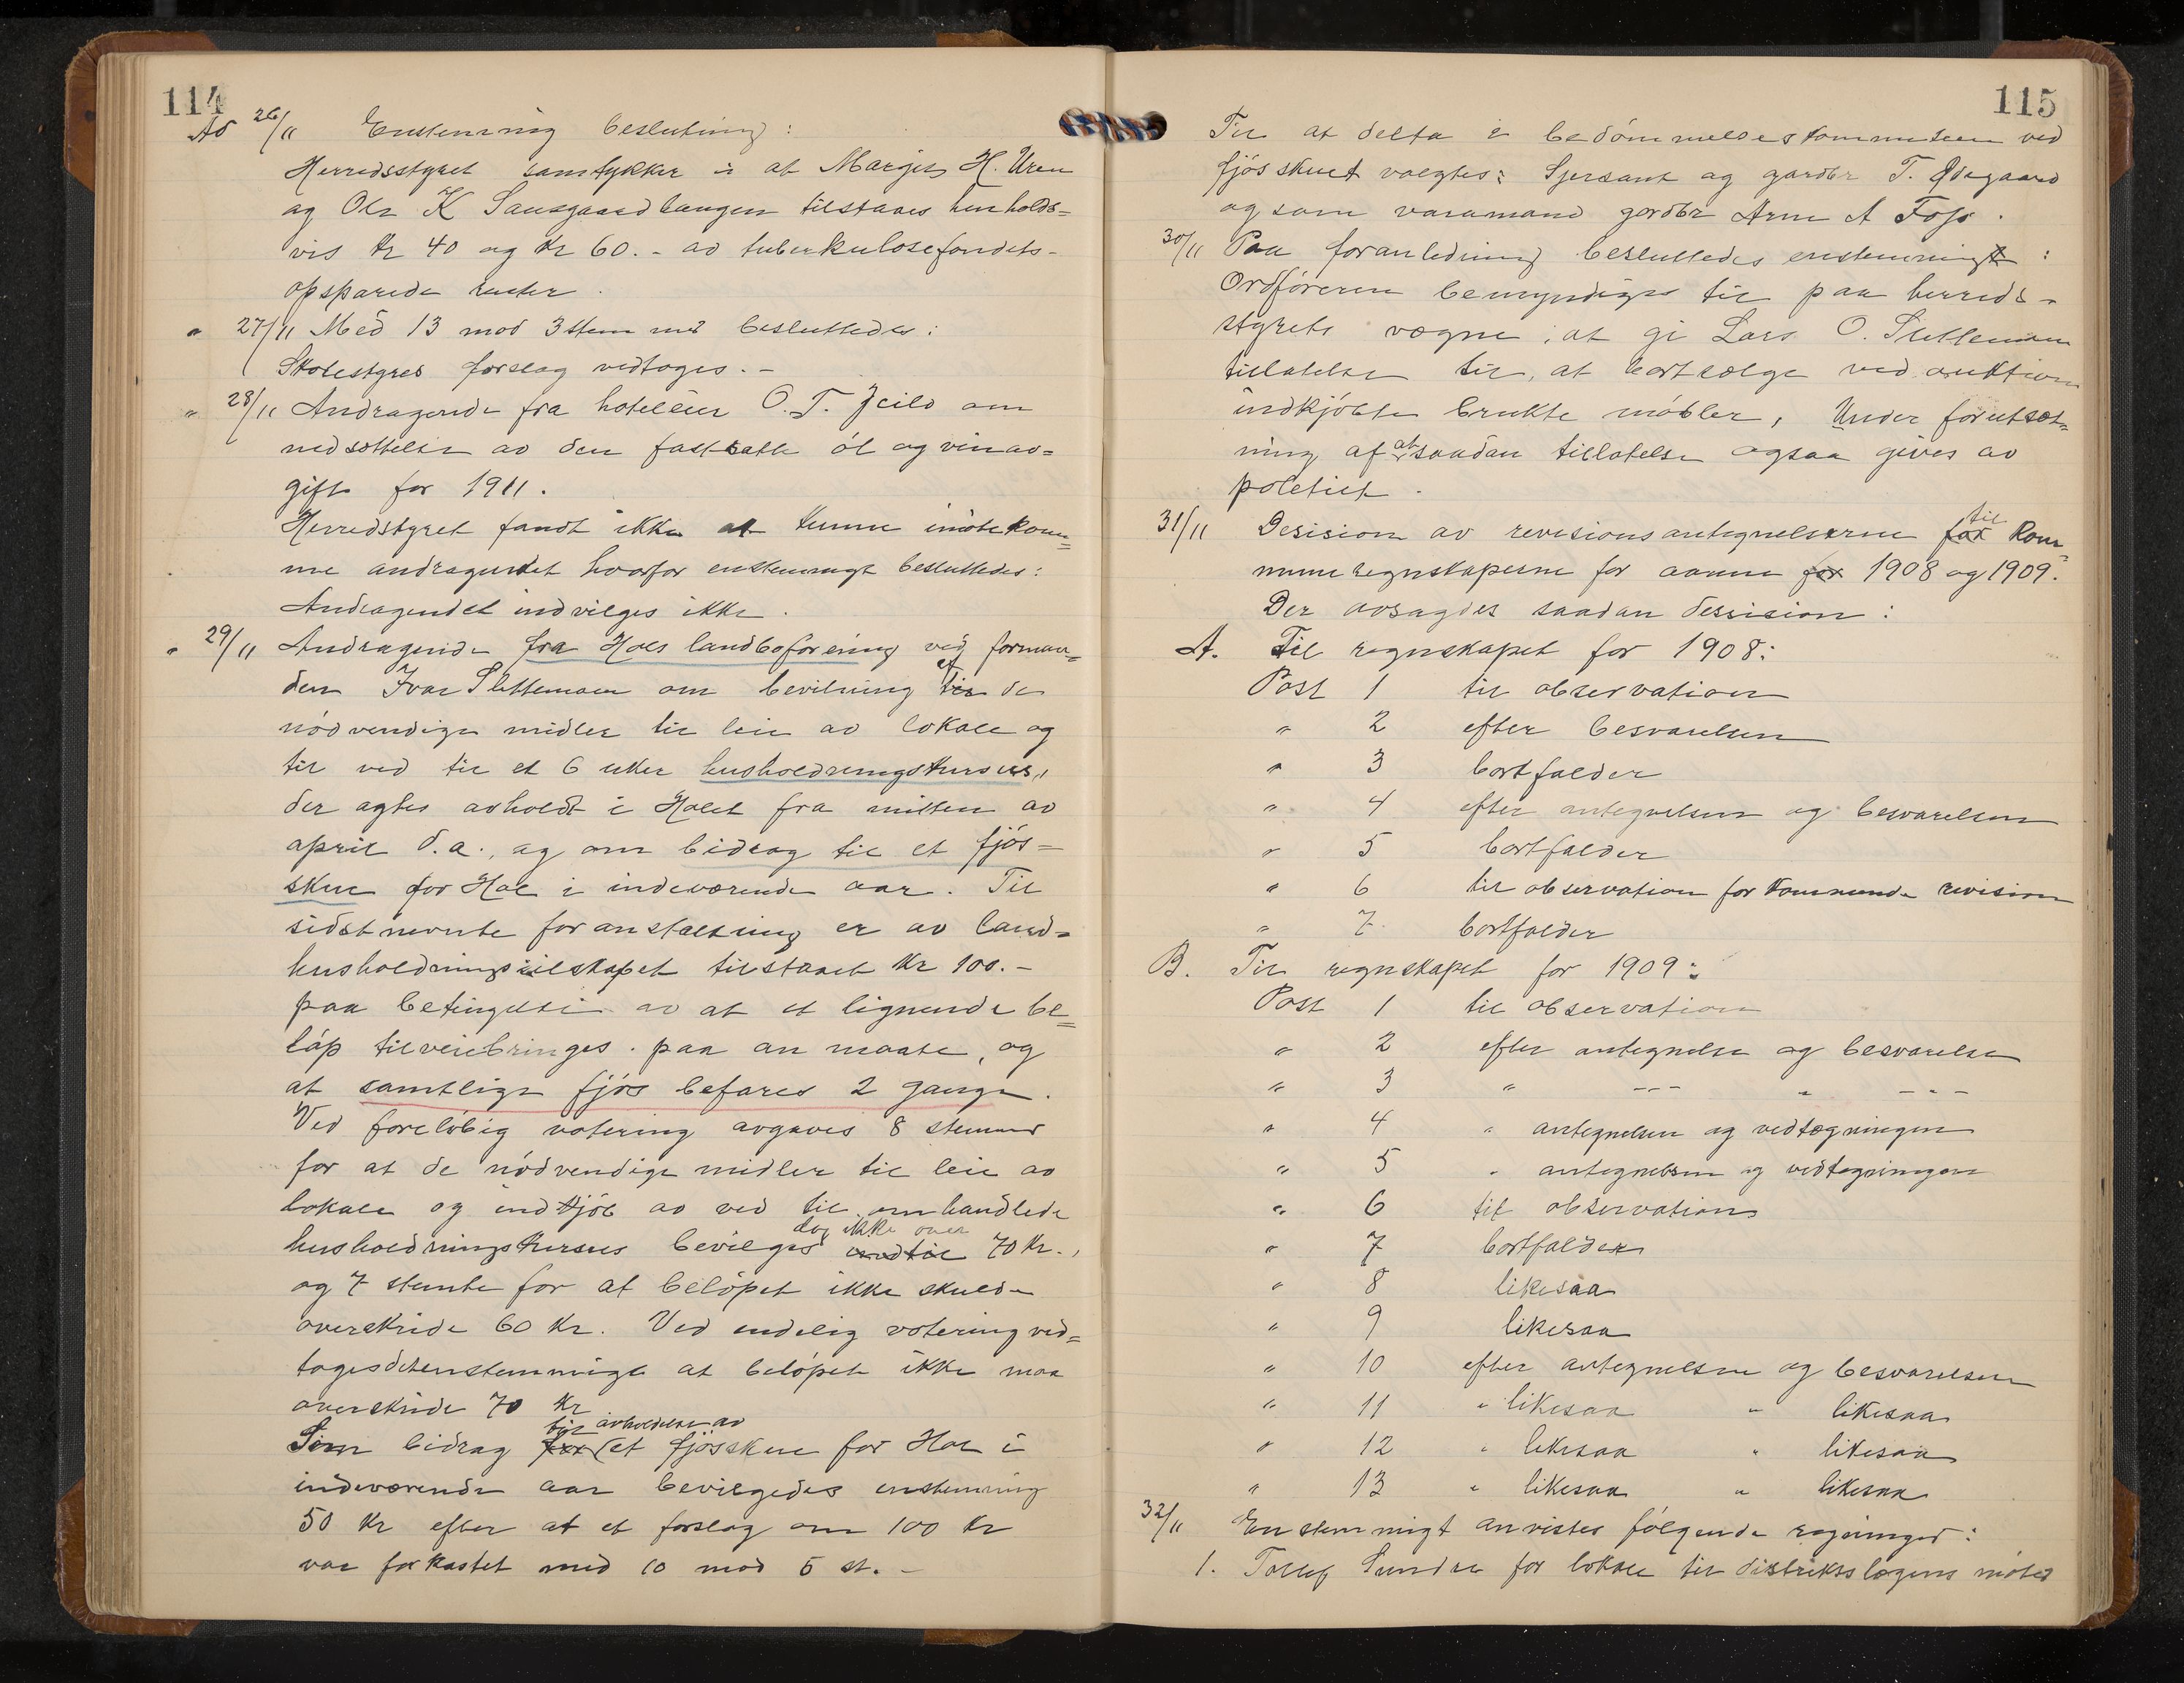 114
Ad 26/11 Enstemmig beslutning:
Herredsstyret samtykker i at Margit H. Uren
og Ole K Sausgaardhaugen tilstaaes henholds=
vis kr 40 og kr 60.- av tuberkulosefondets-
opsparede renter.
" 27/11 Med 13 mod 3 stemmer besluttedes:
Skolestyres forslag vedtages.-
" 28/11 Andragende fra hoteleier O. T. Jeilo om
nedsættelse av den fastsatte øl og vinav=
gift for 1911.
Herredstyret fandt ikke at kunne imøtekom=
me andragendet hvorfor enstemmigt besluttedes:
Andragendet indvilges ikke.
" 29/11 Andragende fra Hols landboforening ved forman=
den Ivar Slettemoen om bevilning af de
nødvendige midler til leie av lokale og
til ved til et 6 uker husholdningskursus,
der agtes avholdt i Holet fra midten av
april d.a., og om bidrag til et fjøs=
skue for Hol i indeværende aar. Til
sidstnevnte foranstaltning er av land=
husholdningsselskapet tilstaaet kr 100.-
paa betingelse av at et lignende be=
løp tilveiebringes paa an maate, og
at samtlige fjøs befares 2 gange.
Ved foreløbig votering avgaves 8 stemmer
for at de nødvendige midler til leie av
lokale og indkjøb av ved til omhandlede
husholdningskursus bevilges dog ikke over 70 kr.,
og 7 stemte for at beløpet ikke skulde
overskride 60 kr. Ved endelig votering ved=
toges det enstemmigt at beløpet ikke maa
overskride 70 kr
Som bidrag til avholdelse av et fjøsskue for Hol i
indeværende aar bevilgedes enstemmig
50 kr efter at et forslag om 100 kr
var forkastet med 10 mod 5 st.-
115
Til at delta i bedømmelseskommiteen ved
fjøsskuet valgtes: Sersant og gardbr T. Ødegaard
og som varamand gardbr Arne A Foss.
30/11 Paa foranledning besluttedes enstemmig:
Ordføreren bemyndiges til paa herreds-
styrets vægne, at gi Lars O. Slettemoen
tillatelse til, at bortsælge ved auktion
indkjøbte brukte møbler, Under forutsæt=
ning af at saadan tillatelse ogsaa gives av
politiet.
31/11 Desision av revisionsantegnelserne til kom=
muneregnskaperne for aarene 1908 og 1909.
Der avsagdes saadan desision:
A. Til regnskapet for 1908:
Post 1 til observation
" 2 efter besvarelsen
" 3 bortfalder
" 4 efter antegnelsen og besvarelsen
" 5 bortfalder
" 6 til observation for kommende revision
" 7 bortfalder
B. Til regnskapet for 1909:
Post 1 til observation
" 2 efter antegnelse og besvarelse
" 3 " --- " ---
" 4 " antegnelsen og vedtægningen
" 5 " antegnelsen og vedtegningen
" 6 til observation
" 7 bortfalder
" 8 likesaa
" 9 likesaa
" 10 efter antegnelsen og besvarelsen
" 11 " likesaa " likesaa
" 12 " likesaa " likesaa
" 13 " likesaa " likesaa
32/11 Enstemmigt anvistes følgende regninger:
1. Tollef Sundre for lokale til distriktslægens møter